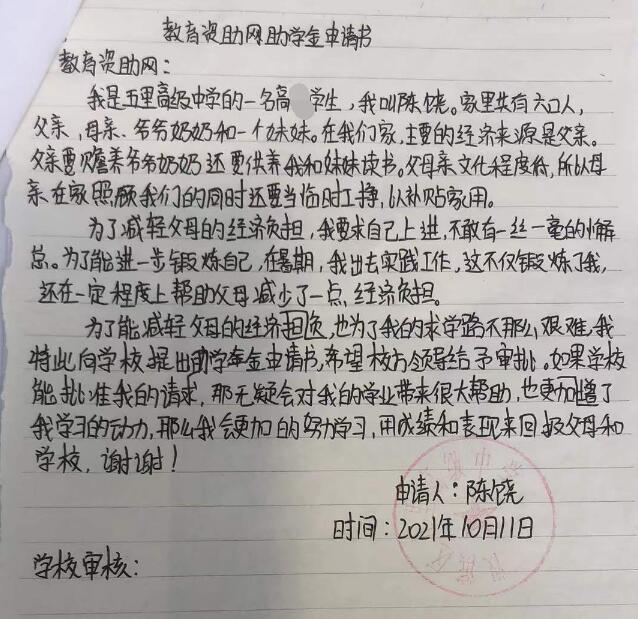 教育资助网助学金申请书
教育资助网：
我是五里高级中学的一名高 学生，我叫陈饶。家里共有六口人，
父亲，母亲、爷爷奶奶和一个妹妹。在我们家，主要的经济来源是父亲。
父亲要赡养爷爷奶奶还要供养我和妹妹读书。父母亲文化程度低，所以母
亲在家照顾我们的同时还要当临时工挣，以补贴家用。
为了减轻父母的经济负担，我要求自己上进，不敢有一丝一毫的懈
怠。为了能进一步锻炼自己，在暑期，我出去实践工作，这不仅锻炼了我，
还在一定程度上帮助父母减少了一点经济负担。
为了能减轻父母的经济担负，也为了我的求学路不那么艰难，我
特此向学校提出助学金申请书，希望校方领导给予审批。如果学校
能批准我的请求，那无疑会对我的学业带来很大帮助，也更加增了
我学习的动力，那么我会更加的努力学习，用成绩和表现来回报父母和
学校，谢谢！
申请人：陈饶
时间：2021年10月11日
学校审核：